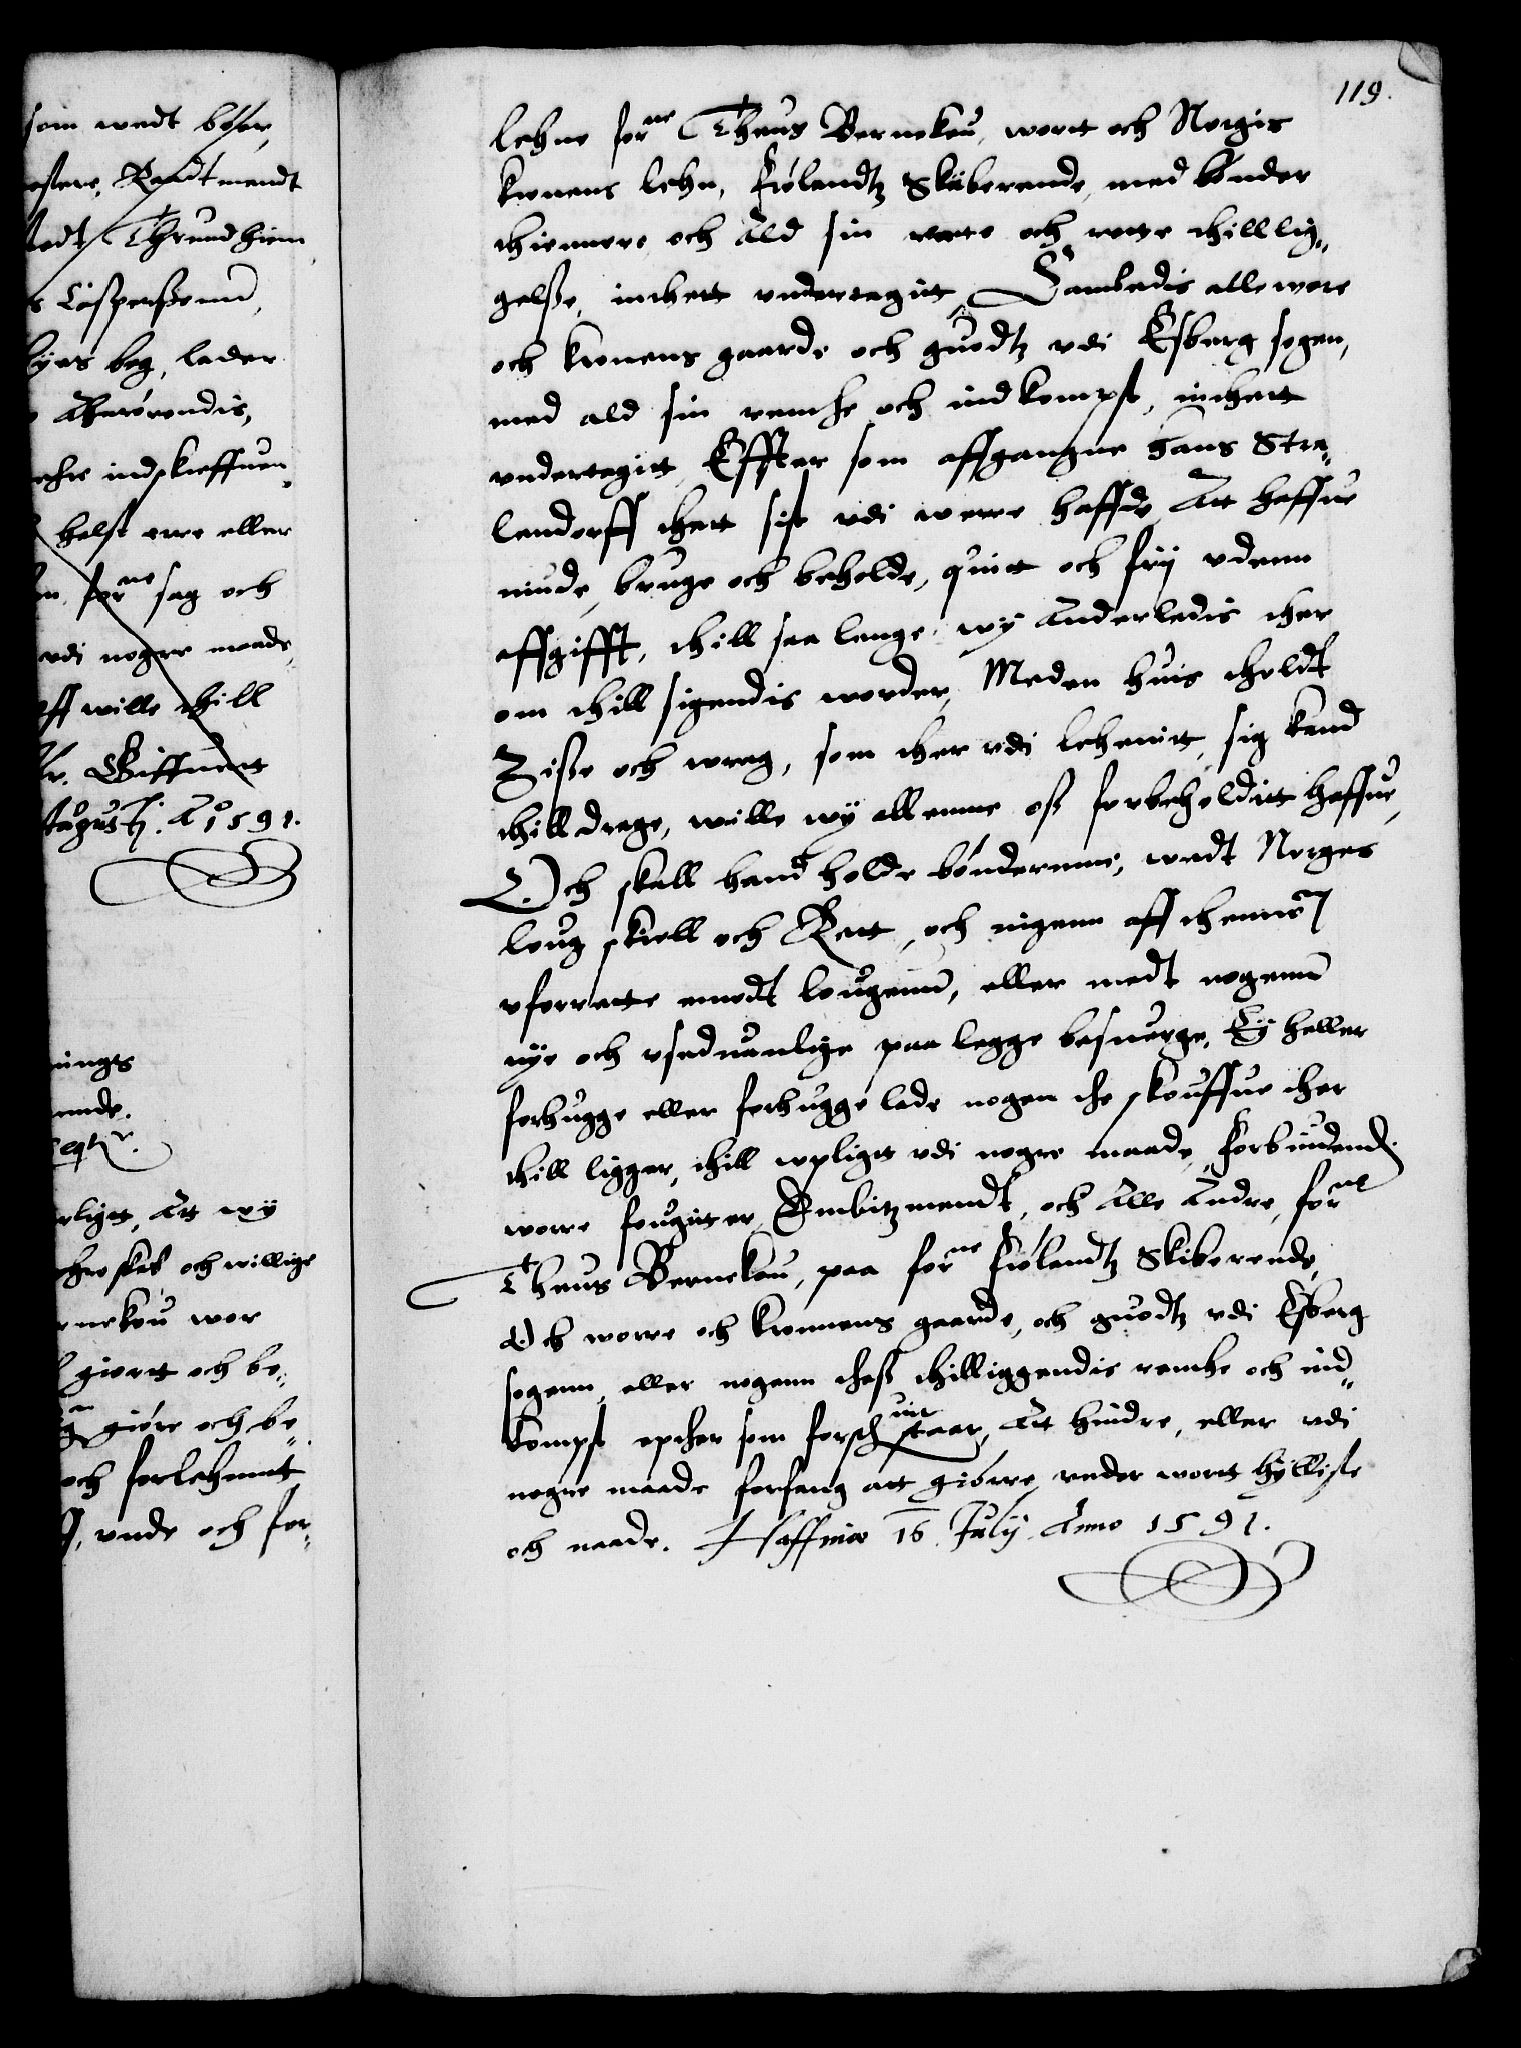 som wedt bøsser,
Rendtmandt
Thrundhiem
Casperßenn,
byes beg, lader
Anrørendis,
indskreffuen
helst erre eller
forne sag och
vdi nogre maade,
aff wille thill
Giffuett
Augustj. Ao 1591.
rligt, At wy
och willige
rnekou wor
giortt och be¬
giøre och be¬
och forlehnnt
vnde och for¬
119.
lehne forne Theus Bernekou, wortt och Norgis
kronens lehn, Frølandtz Skiberende, med bønder
thiennere och Ald sin rette och rette thilllig¬
gelße, inthett vndertagitt, Sambledis alle wore
och kronens gaarde och guodtz vdi Esberg sogen,
med ald sin renthe och indkompst, inthett
vndertagitt, Effter som affgangne Hans Stra¬
lendorff thett sist vdi werre haffde, At haffue
niude, bruge och beholde, quitt och frij vdenn
affgifft, thill saa lenge wy Anderledis ther
om thill sigendis worder, Meden huis tholdt
Ziße och wrag, som ther vdi lehenitt, sig kand
thill drage, wille wy allenne oß forbeholditt haffue,
Och skall hand holde bønderenne, wedt Norges
loug skiell och Rett, och ingenn aff thennom
vforrette emodt lougenn, eller medt nogenn
nye och vsedvanlige paa legge besuerge, Ey heller
forhugge eller forhugge lade nogen the skouffue ther
thill ligger, thill wpligt vdi nogre maade, Forbiudendis
worre fougitter, Embitzmendt, och Alle Andre, forne
Theus Bernekou, paa forne Frølandtz Skiberende,
Och worre och kronnens gaarde, och guodtz vdi Esberg
sogenn, eller nogenn theß thilliggendis renthe och ind¬
kompst epther som forschreffuit staar, At hindre, eller vdi
nogre maade forfang att giørre, vnder wortt hylliste
och naade. Haffniæ 16 July Anno 1591.